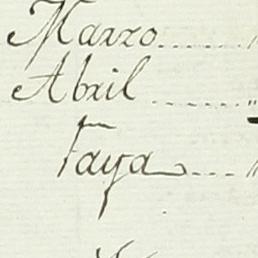 Marzo
Abril
Faya